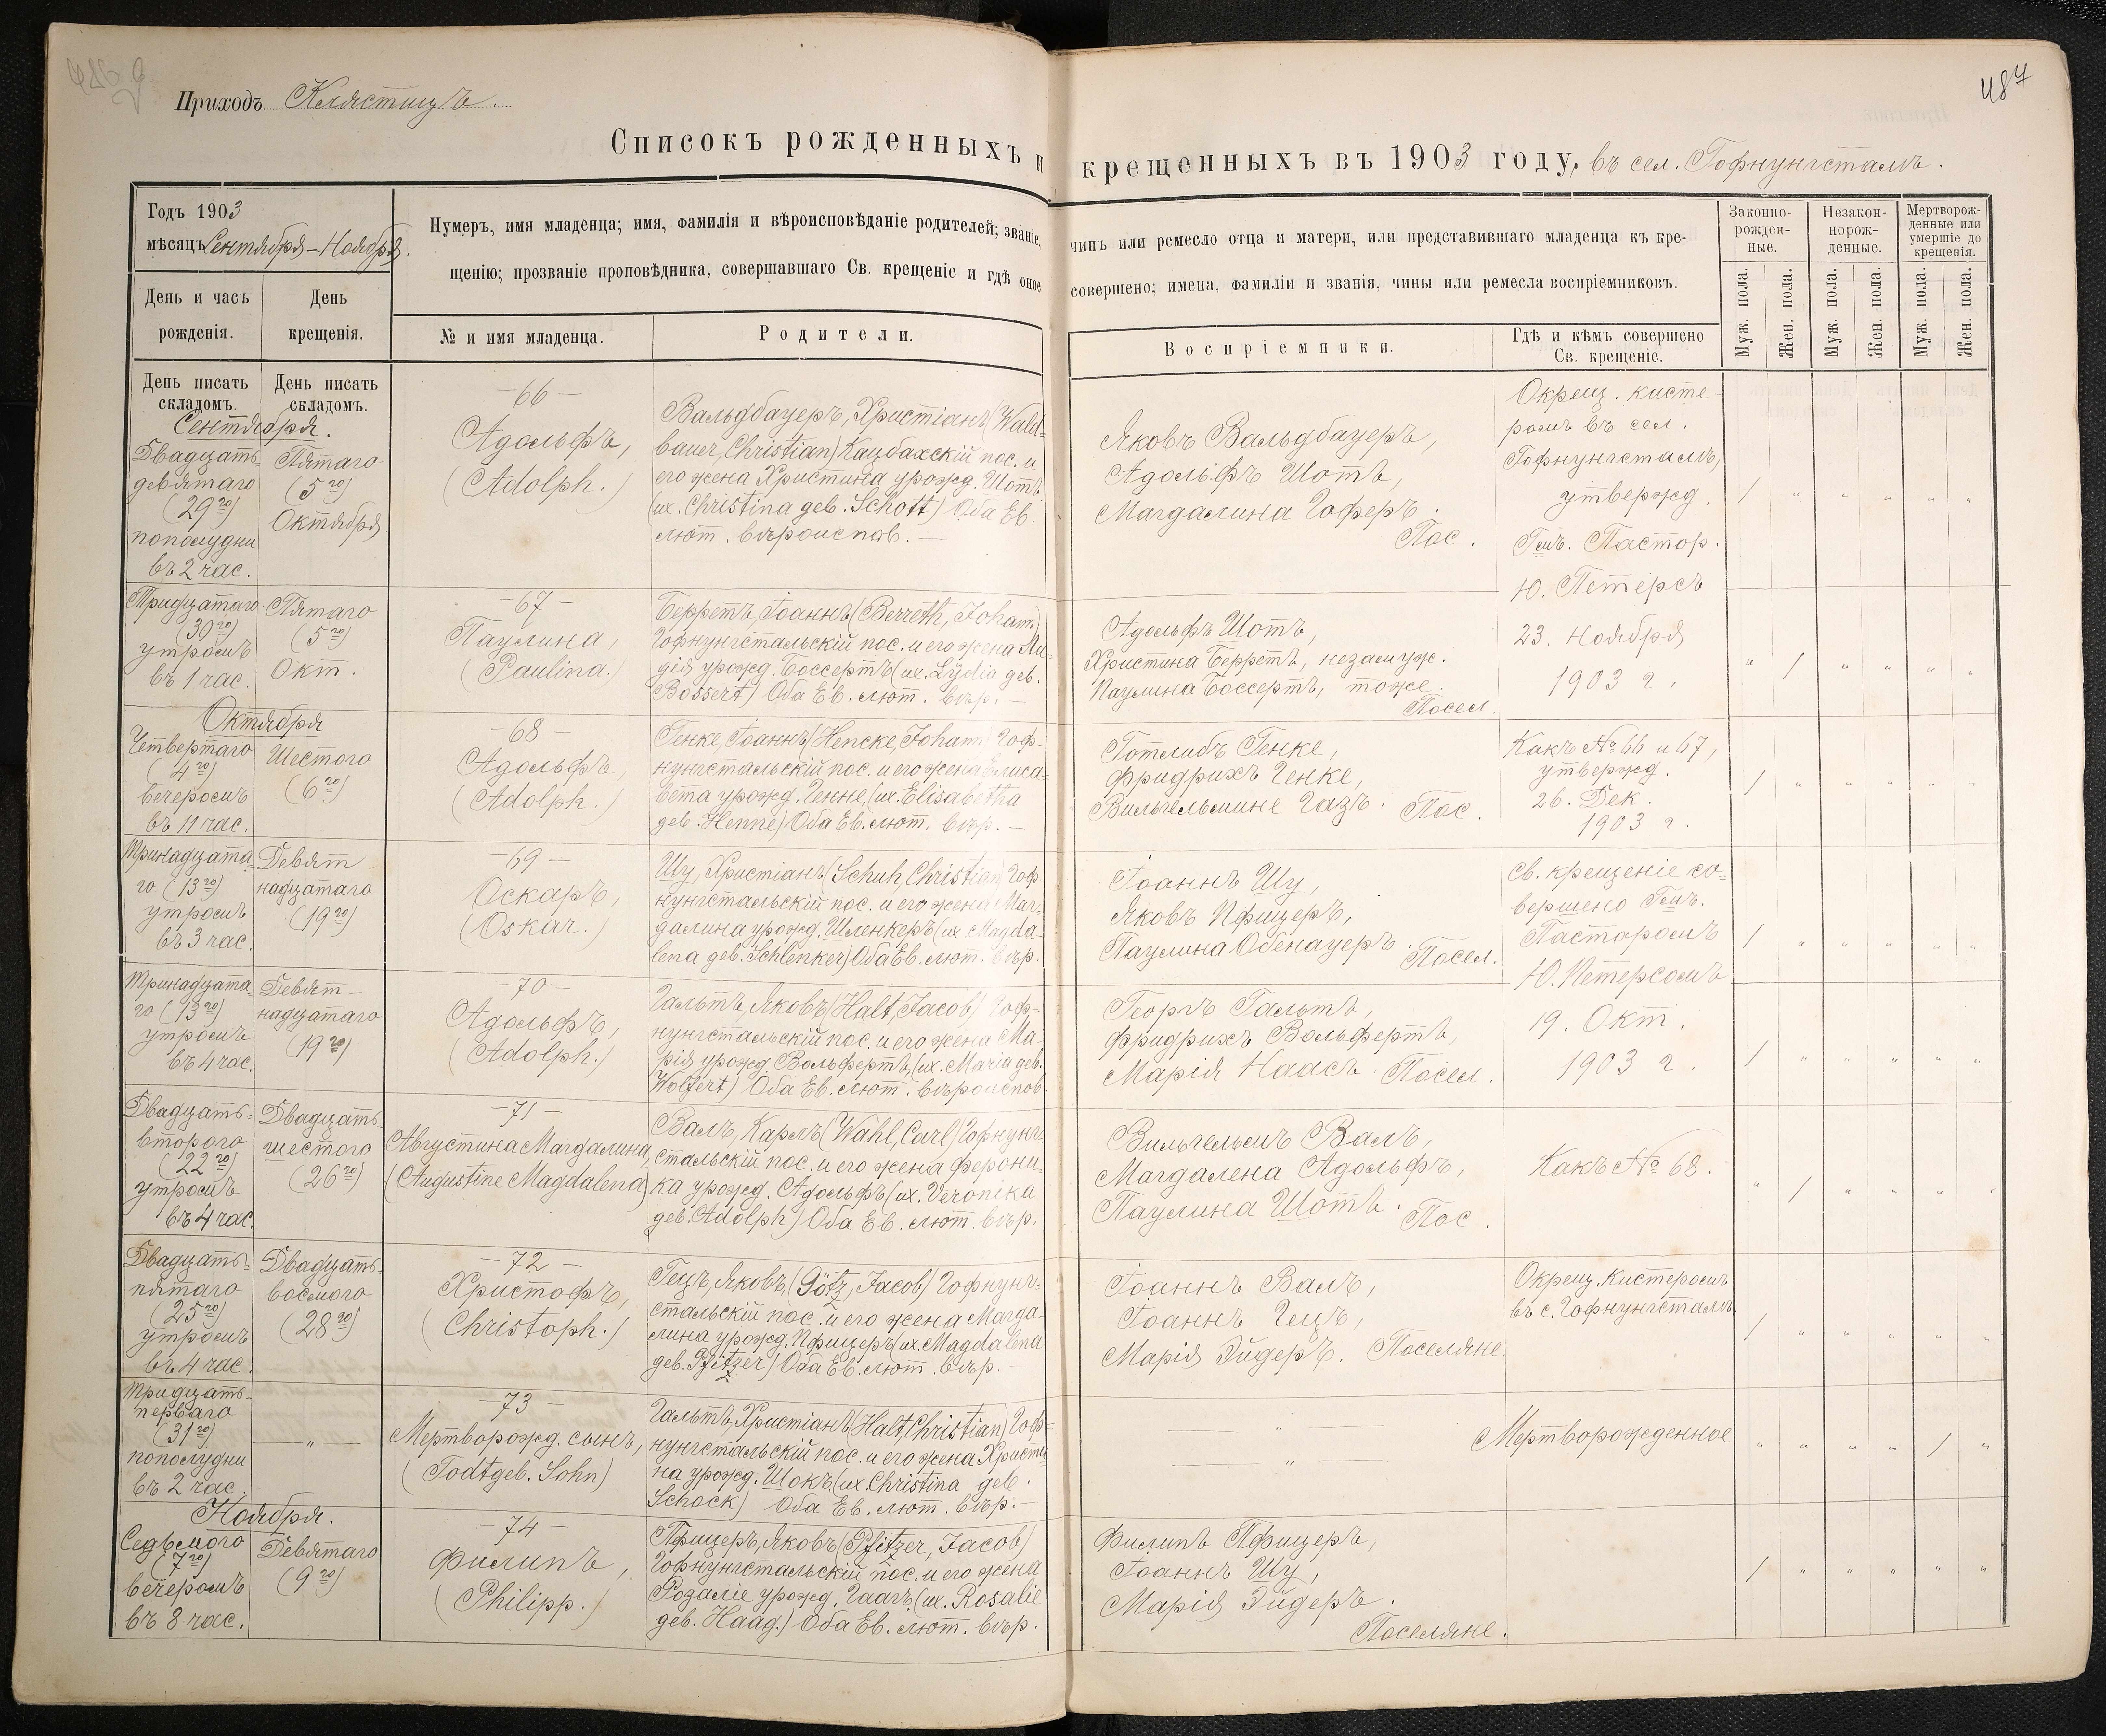 Приходъ Клястицъ.
487
Списокъ рожденныхъ и крещенныхъ въ 1903 году, въ сел. Гофнунгсталъ.
Годъ 1903
мѣсяцъ Сентября – Ноября.
Нумеръ, имя младенца; имя, фамилія и вѣроисповѣданіе родителей; званіе,
чинъ или ремесло отца и матери, или представившаго младенца къ кре-
щенію; прозваніе проповѣдника, совершавшаго Св. крещеніе и гдѣ оное
совершено; имена, фамиліи и званія, чины или ремесла воспріемниковъ.
Законно-
рожден-
ные.
Незакон-
норож-
денные.
Мертворож-
денные или
умершіе до
крещенія.
День и часъ
рожденія.
День
крещенія.
№ и имя младенца.
Родители.
Воспріемники.
Гдѣ и кѣмъ совершено
Св. крещеніе.
Муж. пола.
Жен. пола.
Муж. пола.
Жен. пола.
Муж. пола.
Жен. пола.
День писать
складомъ.
День писать
складомъ.
Сентября.
Двадцать-
девятаго
(29го)
пополудни
въ 2 час.
Пятаго
(5го)
Октября
– 66 –
Адольфъ,
(Adolph.)
Вальдбауеръ, Христіанъ (Wald-
bauer, Christian) Кацбахскій пос. и
его жена Христина урожд. Шотъ
(их. Christina geb. Schott) Оба Ев.
лют. вѣроиспов. –
Яковъ Вальдбауеръ,
Адольфъ Шотъ,
Магдалина Гоферъ.
Пос.
Окрещ. кисте-
ромъ въ сел.
Гофнунгсталъ,
утвержд.
Гмъ. Пастор.
Ю. Петерсъ
23. Ноября
1903 г.
Тридцатаго
(30го)
утромъ
въ 1 час.
Пятаго
(5го)
Окт.
– 67 –
Паулина,
(Paulina.)
Берретъ, Іоаннъ (Berreth, Johann)
Гофнунгстальскій пос. и его жена Ли-
дія урожд. Боссертъ (их. Lydia geb.
Bossert) Оба Ев. лют. вѣр. –
Адольфъ Шотъ,
Христина Берретъ, незамуж.
Паулина Боссертъ, тоже.
Посел.
Октября
Четвертаго
(4го)
вечеромъ
въ 11 час.
Шестого
(6го)
– 68 –
Адольфъ,
(Adolph.)
Генке, Іоаннъ (Hencke, Johann) Гоф-
нунгстальскій пос. и его жена Елиса-
бета урожд. Генне, (их. Elisabetha
geb. Henne) Оба Ев. лют. вѣр. –
Готлибъ Генке,
Фридрихъ Генке,
Вильгельмине Газъ. Пос.
Какъ № 66 и 67,
утвержд.
26. Дек.
1903 г.
Тринадцата-
го (13го)
утромъ
въ 3 час.
Девят
надцатаго
(19го)
– 69 –
Оскаръ,
(Oskar.)
Шу, Христіанъ (Schuh, Christian) Гоф-
нунгстальскій пос. и его жена Маг-
далина урожд. Шленкеръ (их. Magda-
lena geb. Schlenker) Оба Ев. лют. вѣр.
Іоаннъ Шу,
Яковъ Пфицеръ,
Паулина Обенауеръ. Посел.
Св. крещеніе со-
вершено Гмъ.
Пасторомъ
Ю. Петерсомъ
19. Окт.
1903 г.
Тринадцата-
го (13го)
утромъ
въ 4 час.
Девят-
надцатаго
(19го)
– 70 –
Адольфъ,
(Adolph.)
Гальтъ, Яковъ (Halt, Jacob) Гоф-
нунгстальскій пос. и его жена Ма-
рія урожд. Вольфертъ, (их. Maria geb.
Wolfert) Оба Ев. лют. вѣроиспов.
Георгъ Гальтъ,
Фридрихъ Вольфертъ,
Марія Наасъ. Посел.
Двадцать-
второго
(22го)
утромъ
въ 4 час.
Двадцать-
шестого
(26го)
– 71 –
Августина Магдалина,
(Augustine Magdalena)
Валъ, Карлъ (Wahl, Carl) Гофнунг-
стальскій пос. и его жена Ферони-
ка урожд. Адольфъ (их. Veronika
geb. Adolph) Оба Ев. лют. вѣр.
Вильгельмъ Валъ,
Магдалена Адольфъ,
Паулина Шотъ. Пос.
Какъ № 68.
Двадцать-
пятаго
(25го)
утромъ
въ 4 час.
Двадцать-
восмого
(28го)
– 72 –
Христофъ,
(Christoph.)
Гецъ, Яковъ, (Götz, Jacob) Гофнунг-
стальскій пос. и его жена Магда-
лина урожд. Пфицеръ (их. Magdalena
geb. Pfitzer) Оба Ев. лют. вѣр. –
Іоаннъ Валъ,
Іоаннъ Гецъ,
Марія Эйдеръ. Поселяне.
Окрещ. Кистеромъ
въ с. Гофнунгсталъ.
Тридцать-
перваго
(31го)
пополудни
въ 2 час.
– 73 –
Мертворожд. сынъ,
(Todtgeb. Sohn)
Гальтъ, Христіанъ (Halt, Christian) Гоф-
нунгстальскій пос. и его жена Христи-
на урожд. Шокъ (их. Christina geb.
Schock) Оба Ев. лют. вѣр. –
Мертворожденное
Ноября.
Седьмого
(7го)
вечеромъ
въ 8 час.
Девятаго
(9го)
– 74 –
Филипъ,
(Philipp.)
Пфицеръ, Яковъ (Pfitzer, Jacob)
Гофнунгстальскій пос. и его жена
Розаліе урожд. Гаагъ (их. Rosalie
geb. Haag.) Оба Ев. лют. вѣр.
Филипъ Пфицеръ,
Іоаннъ Шу,
Марія Эйдеръ.
Поселяне.